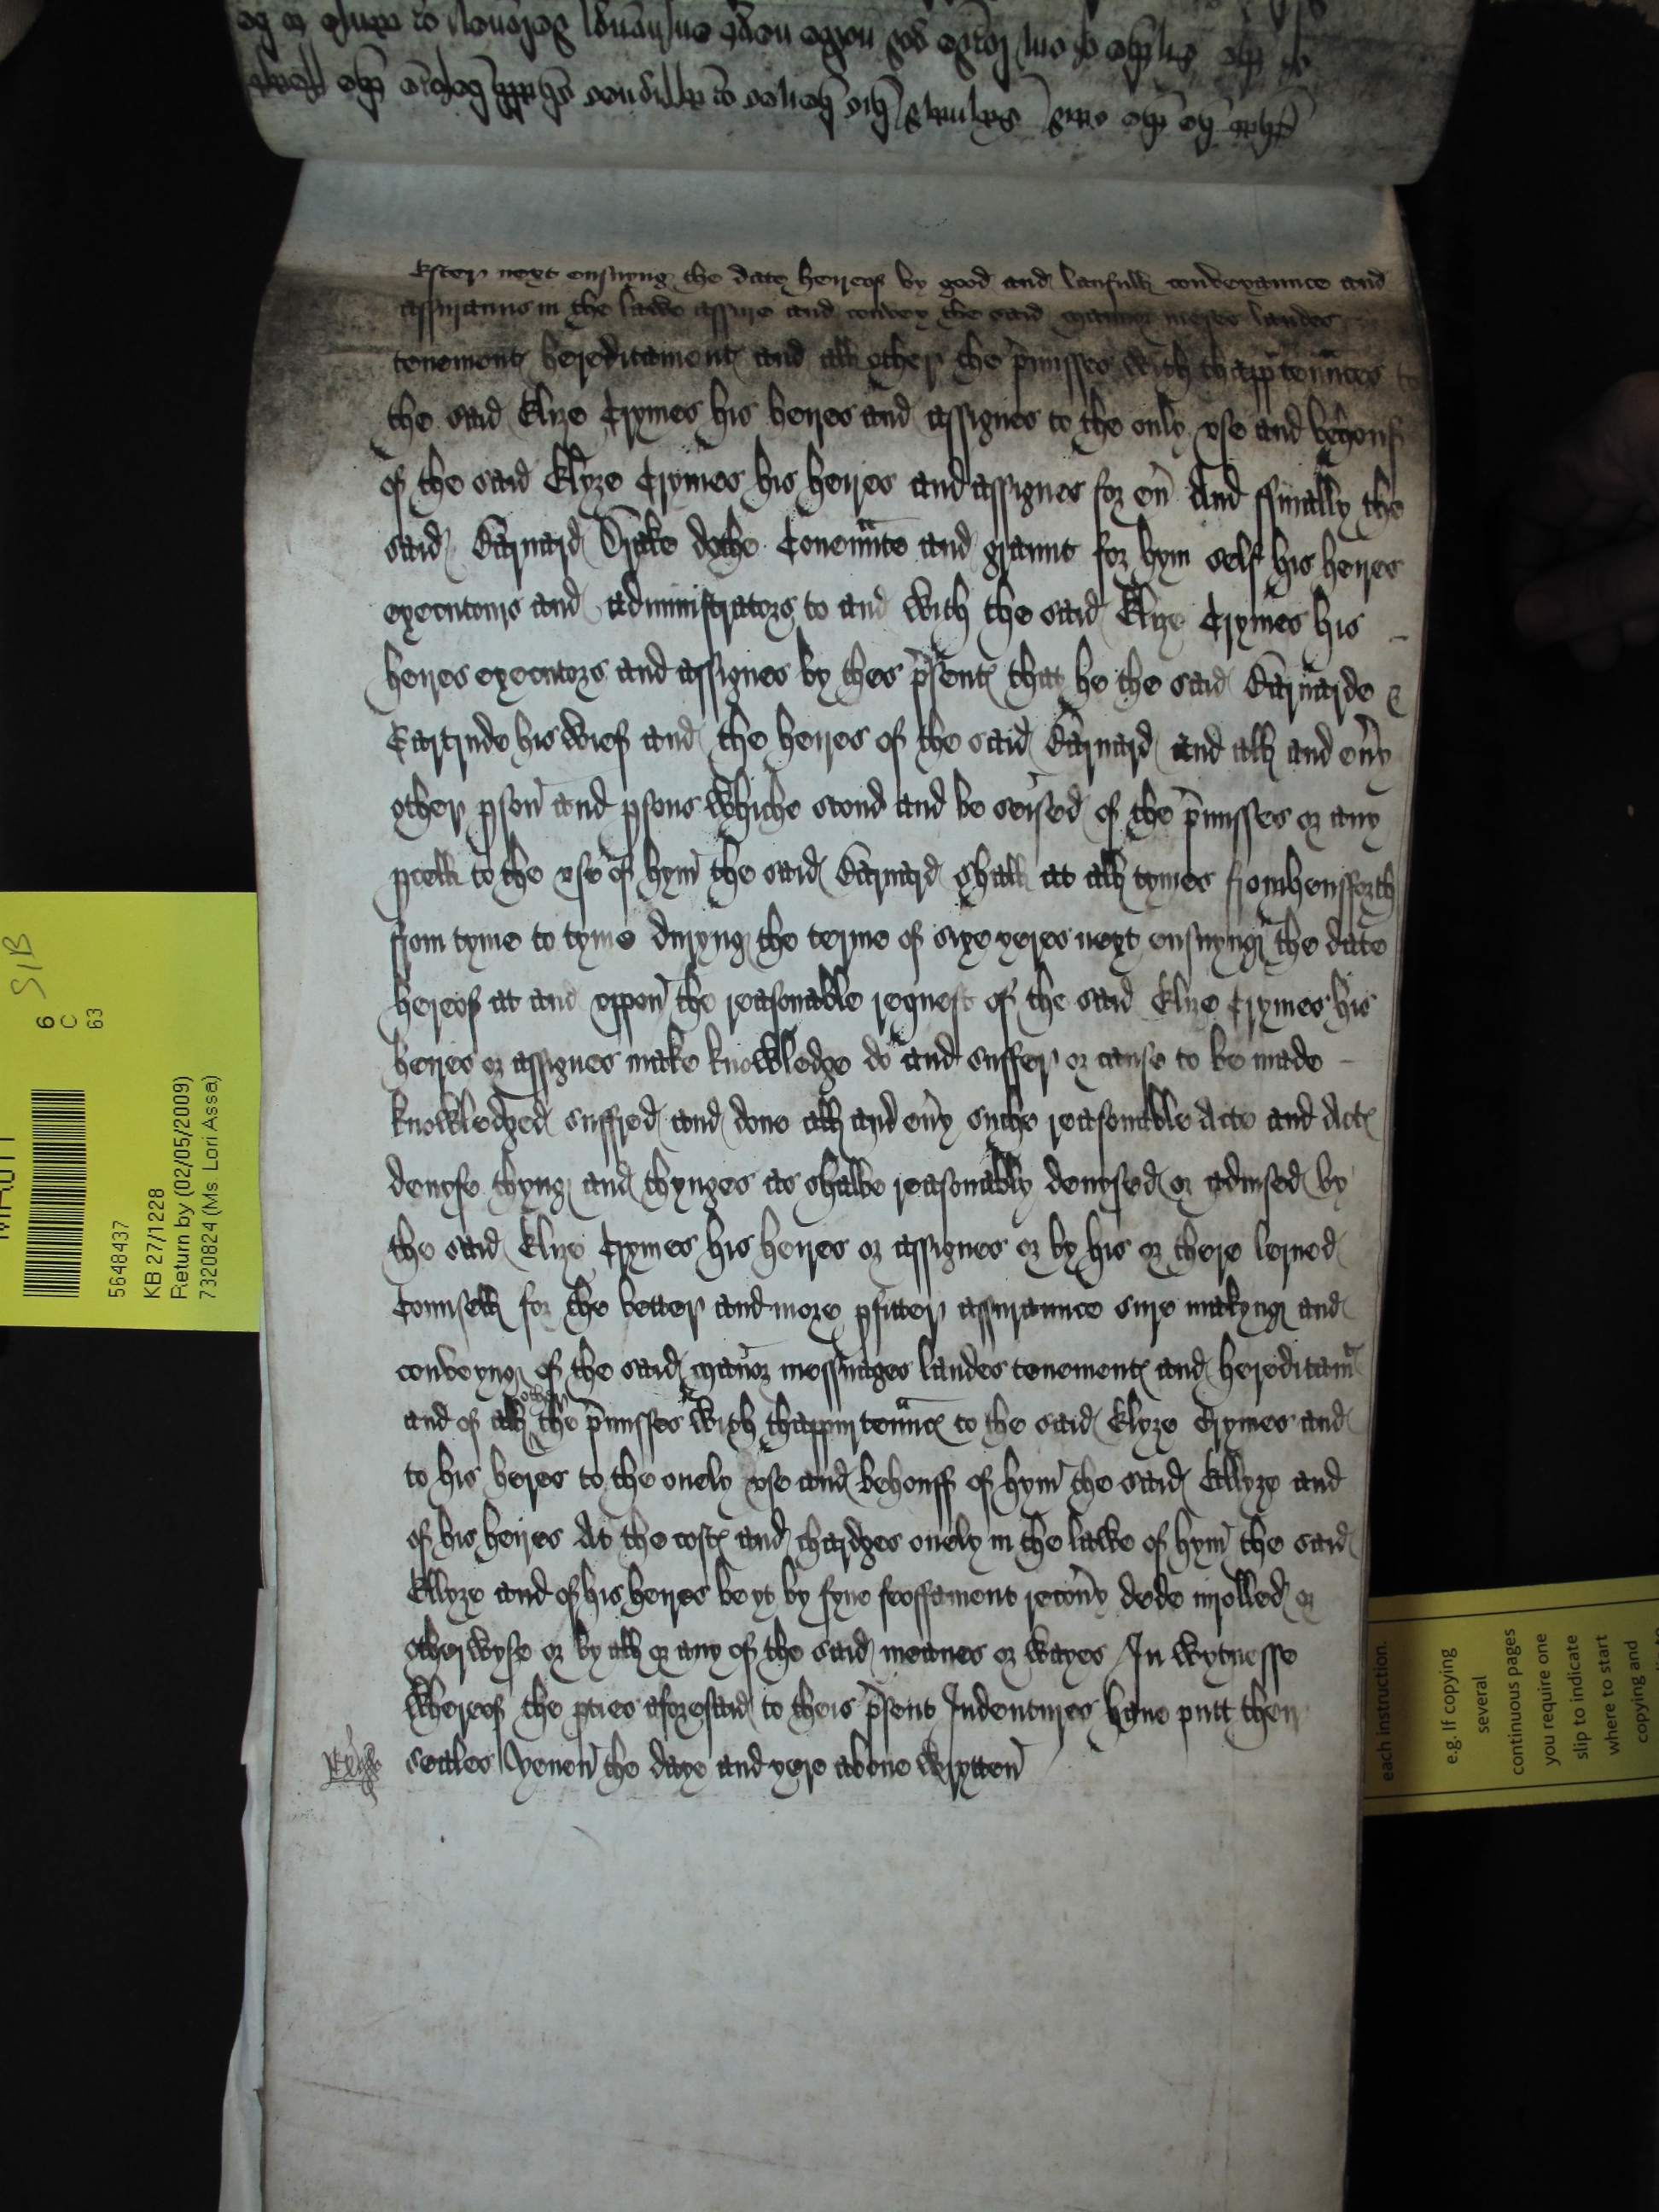 Ester next ensuyng the date hereof by good and laufull conveyaunce and
assurauns in the lawe assure and convey the said manor meses landes
tenement hereditament and all other the p̄misses with thapp̄ten̄nces to
the said Elize Crymes his heires and assignes to the only vse and behouf
of the said Elyze Crymes his heires and assignes for eū And ffinally the
said Barnard Drake dothe Couenn̄te and graunt for hym self his heires
executours and administrators to and with the said Elize Crymes his
heires executors and assignes by thes p̄sent that he the said Barnarde &
Gartrude his wief and the heires of the said Barnard and all and eūy
other pson and psons whiche stond and be seised of the p̄misses or any
pcell to the vse of hym the said Barnard shall at all tymes fromhensforth
from tyme to tyme duryng the terme of sixe yeres next ensuyng the date
hereof at and vppon the reasonable request of the said Elize Crymes his
heires or assignes make knowledge do and suffer or cause to be made
knowledged suffred and done all and eūy suche reasonable Acte and Act
deuyse thyng and thynges as shalbe reasonably deuysed or aduised by
the said Elize Crymes his heires or assignes or by his or there lerned
Counsell for the better and more pfitter assuraunce sure makyng and
conveyng of the said manor messuages landes tenement and hereditam̄
and of all other the p̄misses with thappurten̄nc to the said Elyze Crymes and
to his heres to the onely vse and behouff of hym the said Ellyze and
of his heires At the cost and chardges onely in the lawe of hym the said
Ellyze and of his heires be yt by fyne feoffament recoūy dede inrolled or
otherwyse or by all or any of the said meanes or wayes In wytnesse
whereof the pties aforesaid to theis p̄sent Indentures haue putt their
seales Yeuen the daye and yere aboue wrytten
S/B
6
C
63
5648437
KB 27/1228
Return by (02/05/2009)
7320824 (Ms. Lori Assa)
each instruction.
e.g. If copying
several
continuous pages
you require one
slip to indicate
where to start
copying and